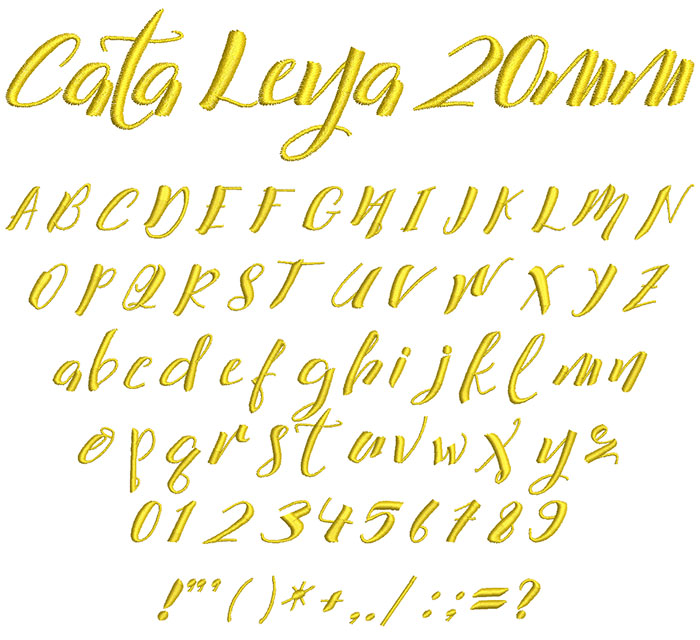 Cata Leya 20mm
A B C D E F G H I J K L M N
O P Q R S T U V W X Y Z
a b c d e f g h i j k l m n
o p q r s t u v w x y z
0 1 2 3 4 5 6 7 8 9
! " ' , ( ) * + , . / : ; = ?